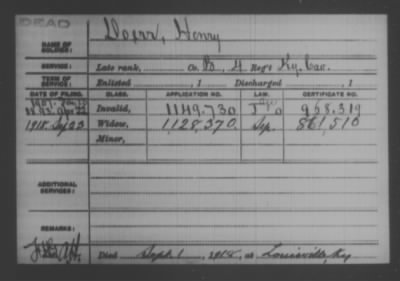 DEAD
NAME OF SOLDIER: Doerr, Henry
SERVICE: Late rank, Co. B, 4 Reg't Ky. Cav.
TERM OF SERVICE: Enlisted , 1 Discharged , 1
DATE OF FILING. CLASS. APPLICATION NO. LAW. CERTIFICATE NO.
1907
Age
Invalid, 1149.730 968.319
1918. Sep 23 Widow, 1,128,370. Sep. 861,510
Minor,
ADDITIONAL SERVICES:
REMARKS:
Died Sept. 1, 1918, at Louisville, Ky